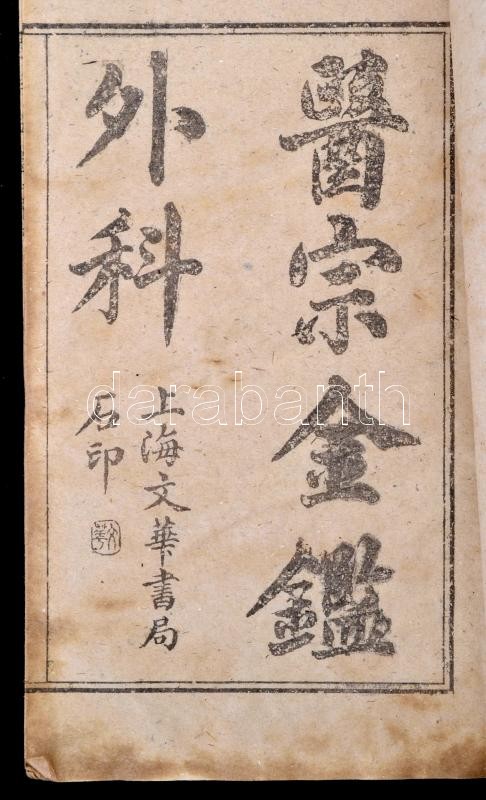 醫宗金鑑
外科
上海文華書局
石印
darabanth